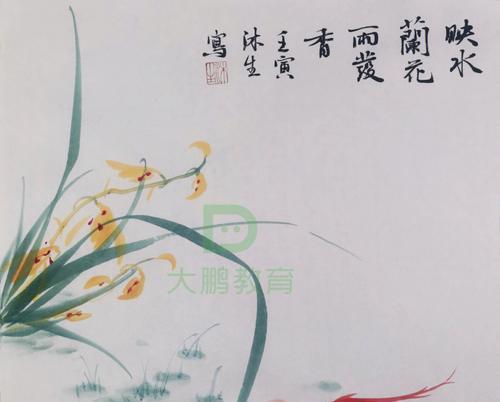 映水
蘭花
雨發
香
壬寅
沐生
寫
大鹏教育